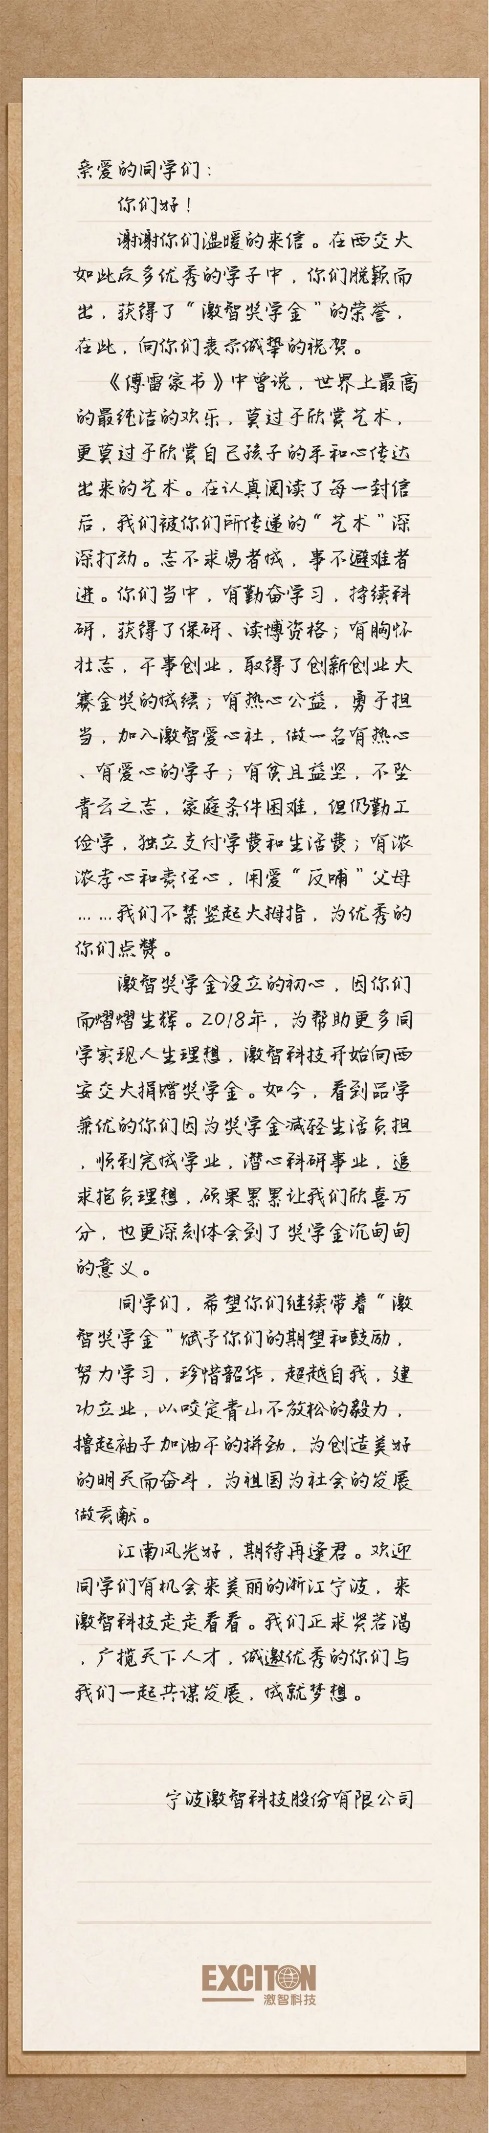 亲爱的同学们：
你们好！
谢谢你们温暖的来信。在西交大
如此众多优秀的学子中，你们脱颖而
出，获得了“激智奖学金”的荣誉，
在此，向你们表示诚挚的祝贺。
《傅雷家书》中曾说，世界上最高
的最纯洁的欢乐，莫过于欣赏艺术，
更莫过于欣赏自己孩子的手和心传达
出来的艺术。在认真阅读了每一封信
后，我们被你们所传递的“艺术”深
深打动。志不求易者成，事不避难者
进。你们当中，有勤奋学习，持续科
研，获得了保研、读博资格；有胸怀
壮志，干事创业，取得了创新创业大
赛金奖的成绩；有热心公益，勇于担
当，加入激智爱心社，做一名有热心
、有爱心的学子；有贫且益坚，不坠
青云之志，家庭条件困难，但仍勤工
俭学，独立支付学费和生活费；有浓
浓孝心和责任心，用爱“反哺”父母
……我们不禁竖起大拇指，为优秀的
你们点赞。
激智奖学金设立的初心，因你们
而熠熠生辉。2018年，为帮助更多同
学实现人生理想，激智科技开始向西
安交大捐赠奖学金。如今，看到品学
兼优的你们因为奖学金减轻生活负担
，顺利完成学业，潜心科研事业，追
求抱负理想，硕果累累让我们欣喜万
分，也更深刻体会到了奖学金沉甸甸
的意义。
同学们，希望你们继续带着“激
智奖学金”赋予你们的期望和鼓励，
努力学习，珍惜韶华，超越自我，建
功立业，以咬定青山不放松的毅力，
撸起袖子加油干的拼劲，为创造美好
的明天而奋斗，为祖国为社会的发展
做贡献。
江南风光好，期待再逢君。欢迎
同学们有机会来美丽的浙江宁波，来
激智科技走走看看。我们正求贤若渴
，广揽天下人才，诚邀优秀的你们与
我们一起共谋发展，成就梦想。
宁波激智科技股份有限公司
EXCITON
激智科技